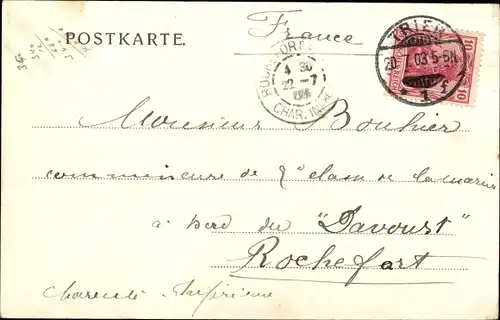 France
POSTKARTE.
TRIER
20 7 03 5-6N
1 f
10 10
ROCHEFORT
4 30
22 -7
CHAR. INFRE
Monsieur Bouhier
commissaire de 2e classe de la marine
à bord du "Davoust"
Rochefort
Charente Inférieure